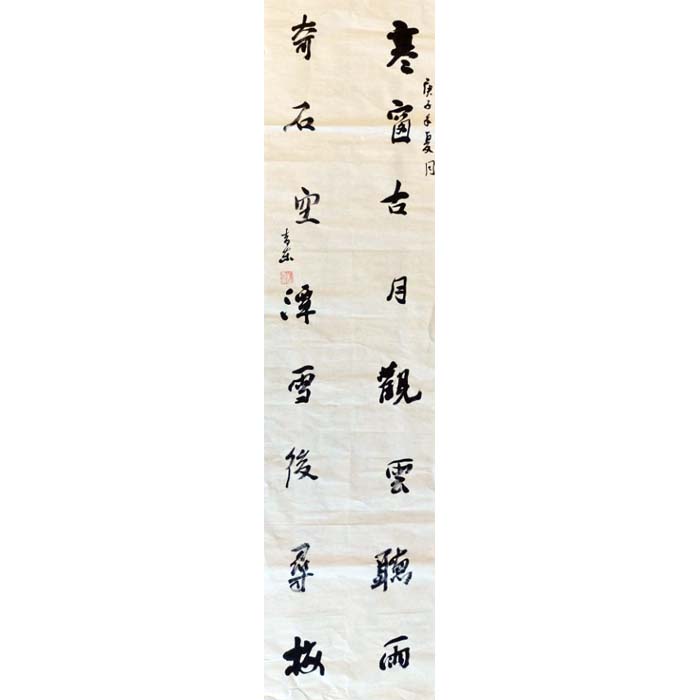 庚子年夏月
寒窗古月觀雲聽雨
奇石空潭雪後尋梅